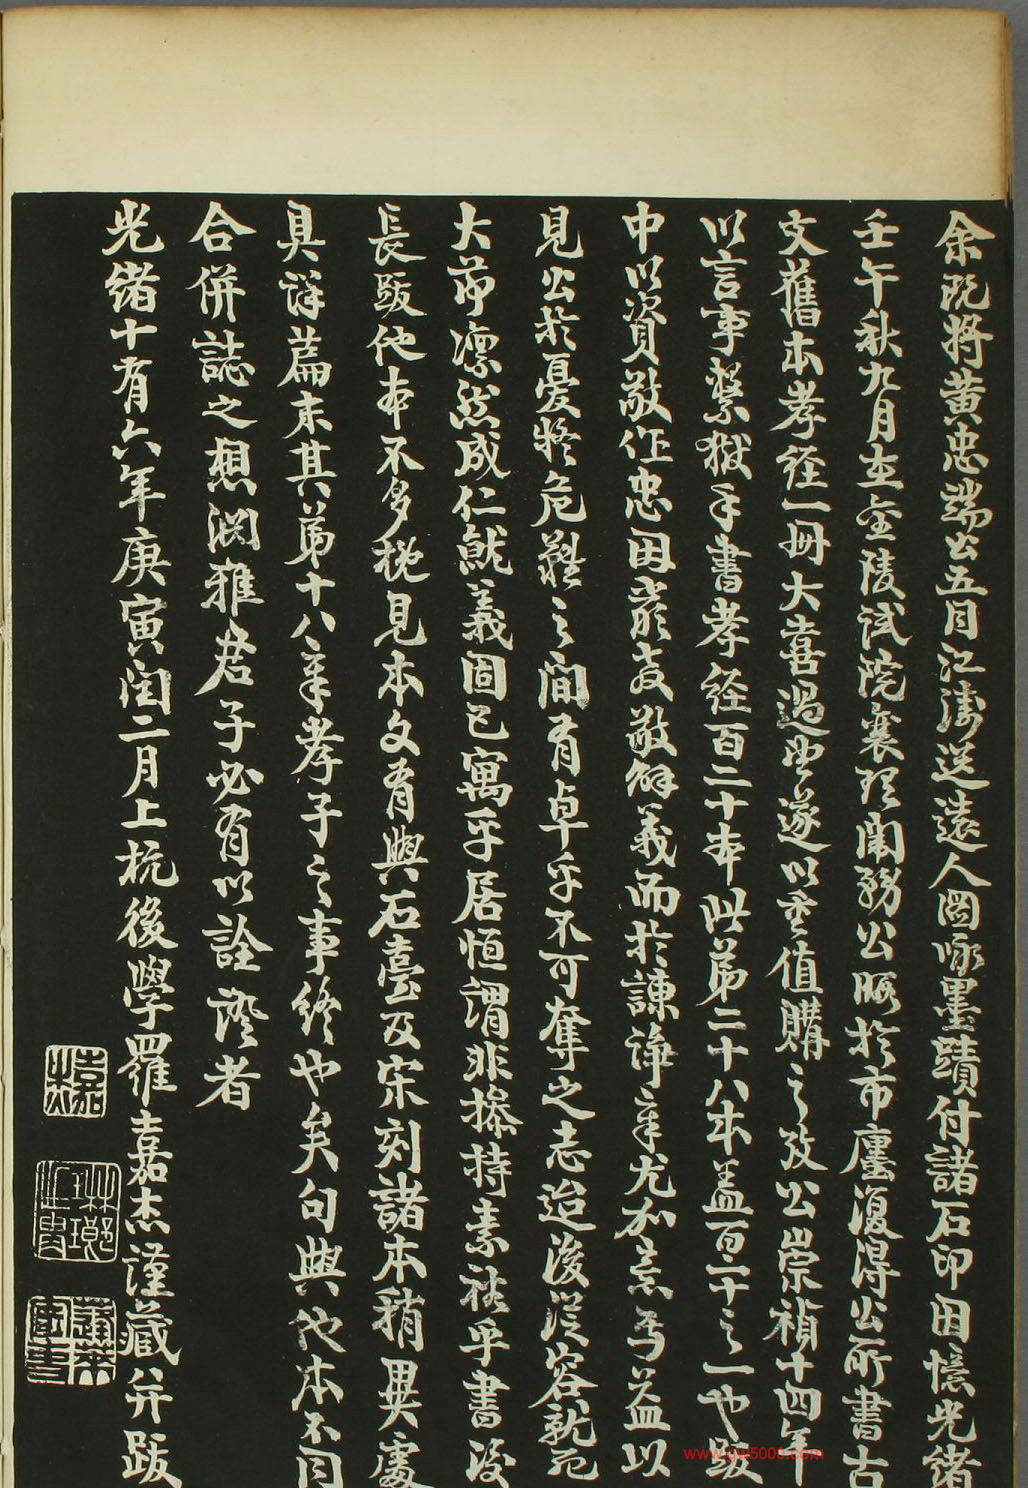 余既將黃忠端公五月江濤送遠人圖詠墨蹟付諸石印因憶光緒
壬午秋九月在金陵試院襄理闈務公暇於市廛復得公所書古
文舊本孝經一冊大喜過望遂以重值購之攷公崇禎十四年
以言事繫獄手書孝經百二十本此第二十八本蓋百二十之一也跋
中以資敬作忠因嚴教敬解義而於諫諍章尤加意焉益以
見公於憂患危難之間有卓乎不可奪之志迨後從容就死
大節凜然成仁就義固已寓乎居恒謂非操持素裕乎書後
長跋他本不多槪見本文有與石臺及宋刻諸本稍異處
具詳篇末其第十八章孝子之事終也矣句與他本不同
合併誌之想淵雅君子必有以詮證者
光緒十有六年庚寅閏二月上杭後學羅嘉杰謹藏并跋
嘉杰
www.gw5000.com